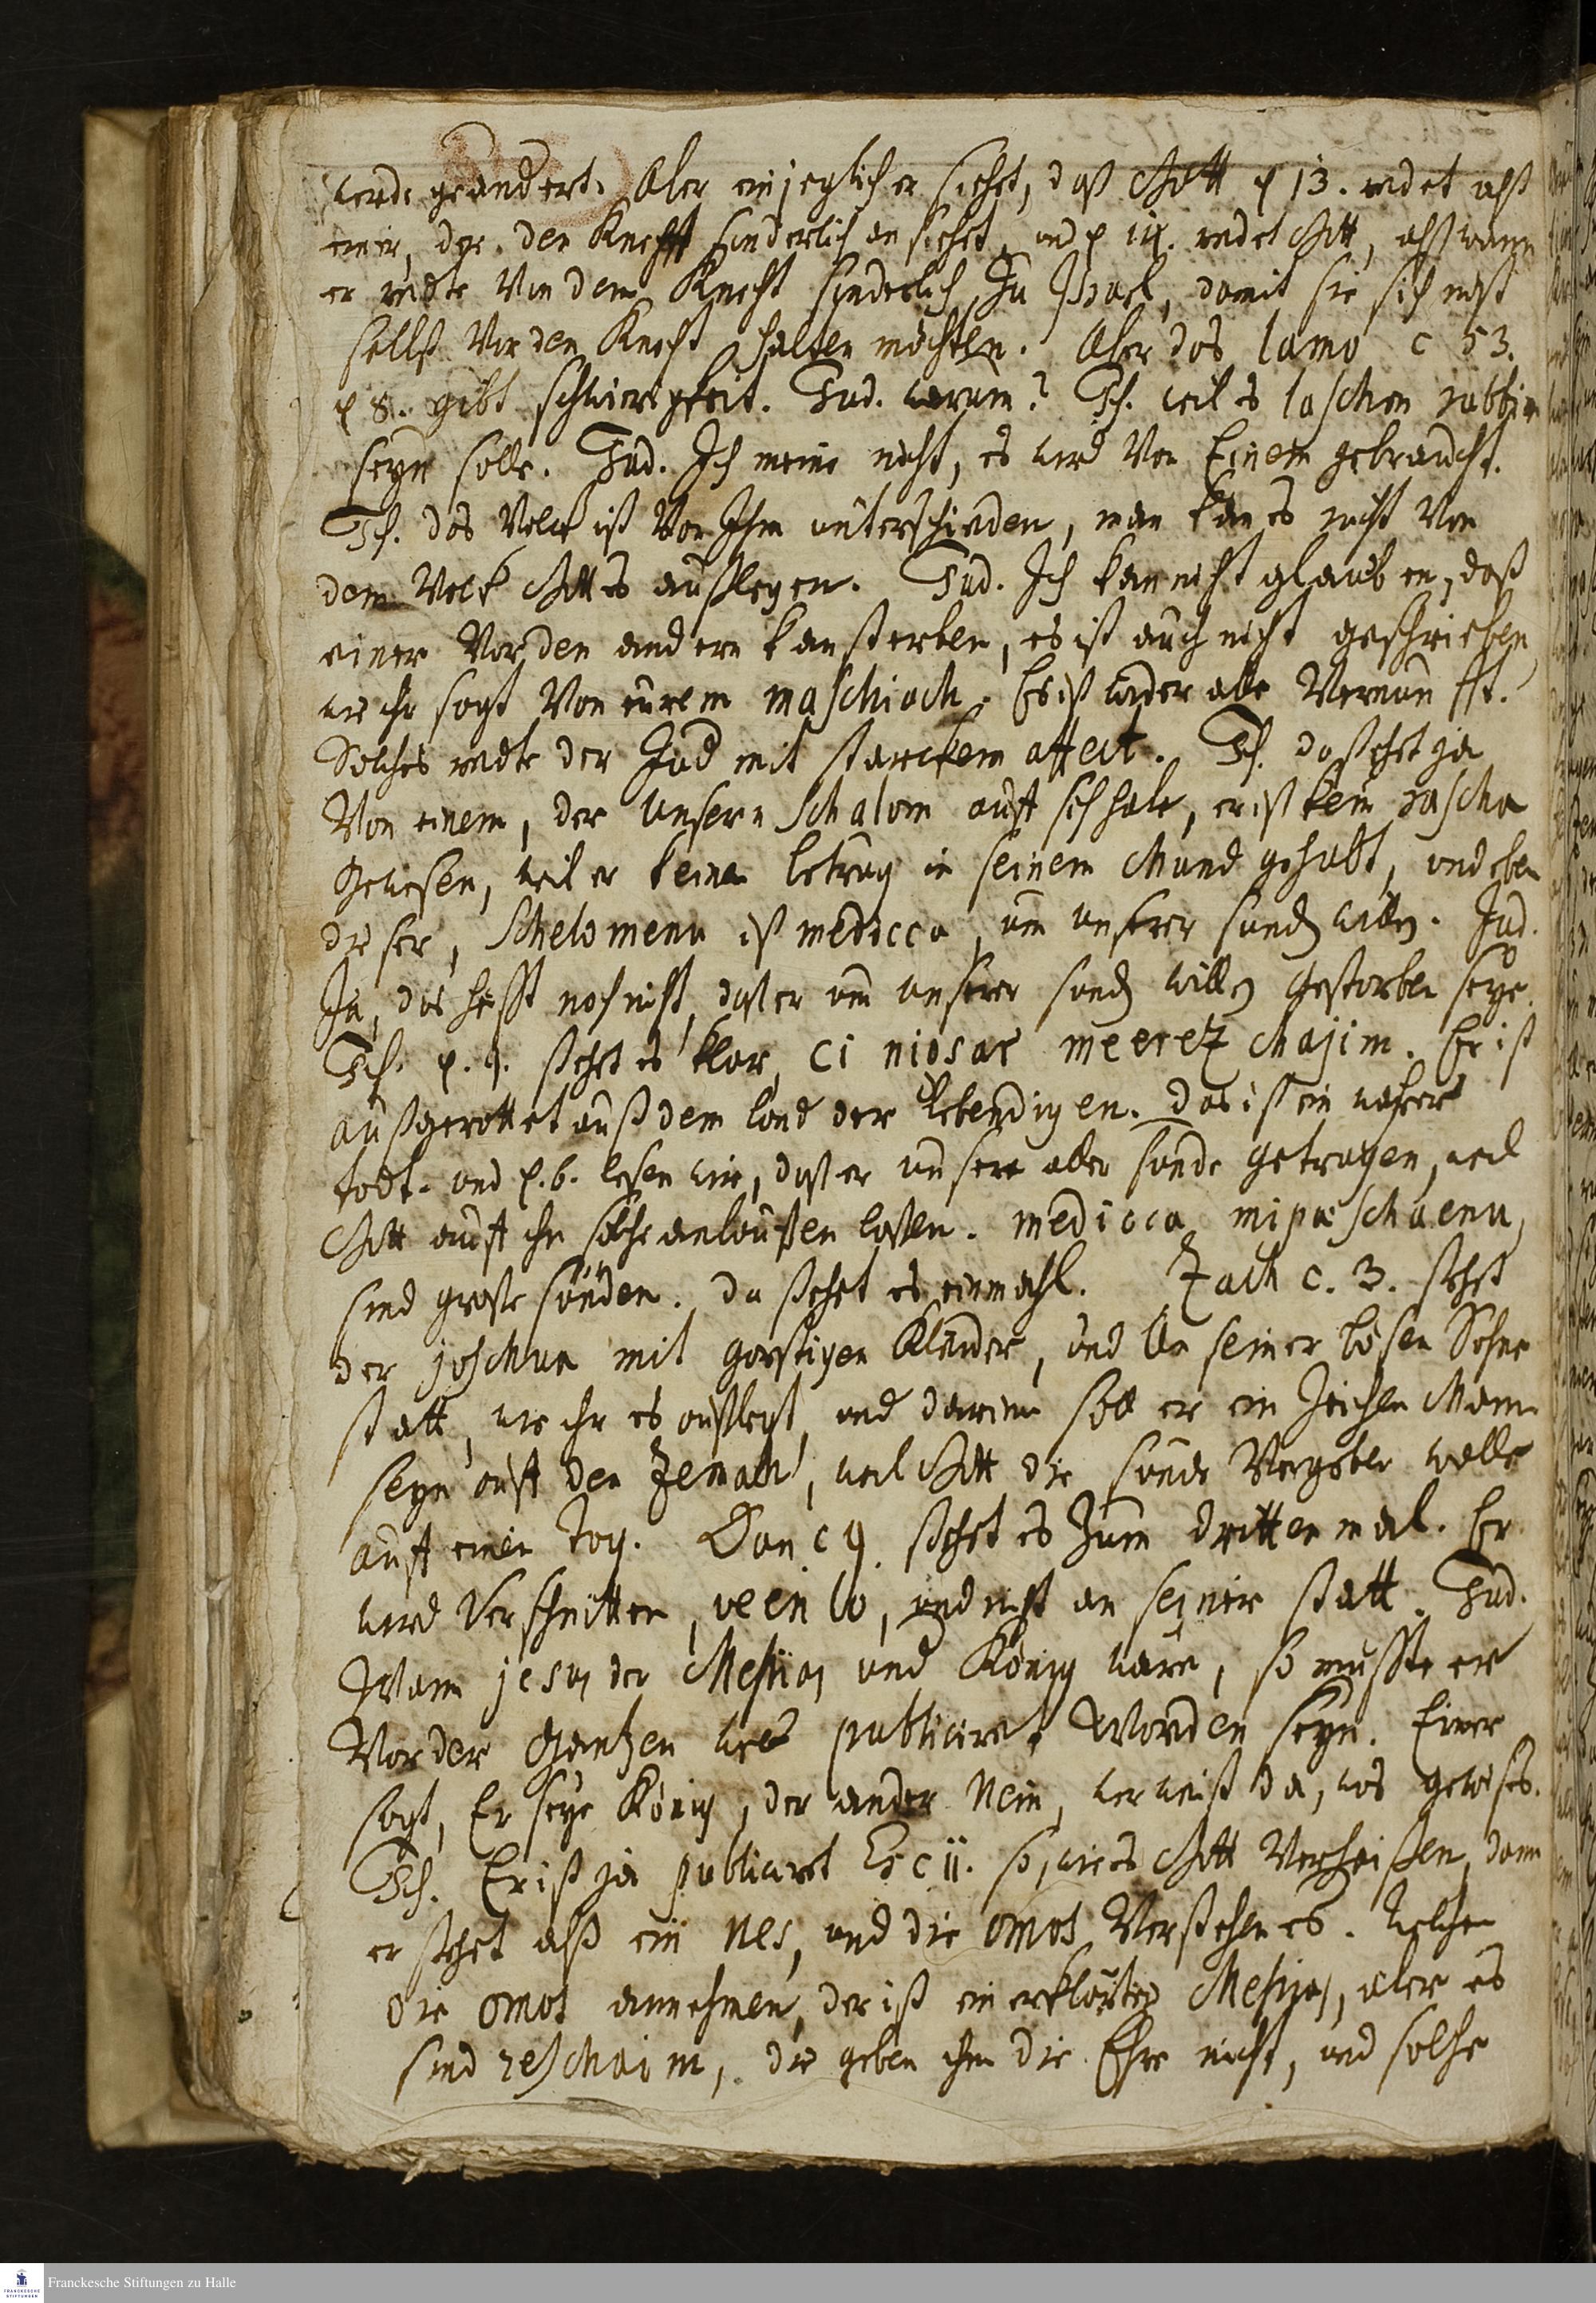 werde geandert. Aber ein jeglicher siehet, daß Gott p 13. redet alß
einer, der den Knecht sonderlich ansiehet, und p 14. redet Gott, alß wann
er redte Von dem Knecht sonderlich zu Israel, damit sie sich nicht
selbst Vor den Knecht halten möchten. Aber das lamo c 53.
p 8. gibt schwierigkeit. Jud. warum? Ich. weil es laschon rabbim
seyn solle. Jud. Ich meine nicht, es wird Von Einem gebraucht.
Ich. das Volck ist Von Ihm unterschieden, man kan es nicht Von
dem Volck Gottes außlegen. Jud. Ich kan nicht glauben, daß
einer Vor den andern kan sterben, es ist auch nicht geschrieben
wie ihr sagt Von eurem maschiach. Es ist wider alle Vernunfft.
Solches redte der Jud mit starckem affect. Ich. da stehet ja
Von einem, der Unsern Schalom auff sich habe, er ist kein rascha
Gewesen, weil er keinen betrug in seinem Mund gehabt, und eben
dieser, Schelomenu ist medicca, um unserer sünden willen. Jud.
Ja, das heisst noch nicht, daß er um unserer sünden willen gestorben seye.
Ich. p. 8. stehet es klar, Ci nigsar meerez chajim. Er ist
außgerottet auß dem land der lebendigen. das ist ein wahrer
todt. und p. 6. lesen wir, daß er unsere aller sünde getragen, weil
Gott auff ihn solche anlauffen lassen. medicca mipeschaenu,
sind grosse sünden. da stehet es einmahl. Zach c. 3. stehet
der joschua mit garstigen Kleider, und An seiner bösen Söhne
statt, wie ihr es außlegt, und darinn soll er ein Zeichen Mann
seyn auff den Zemach, weil Gott die sünde Vergeben wolle
auff einen Tag. Dan c 9. stehet es zum drittenmal. Er
wird Verschnitten, veein lo, und nicht an seiner statt. Jud.
Wann jesus der Messias und König wäre, so müsste er
Vor der Gantzen welt publiciret Worden seyn. Einer
sagt, Er seye König, der ander Nein, wer weist da, was gewises.
Ich. Er ist ja publiciret Es c 11. so, wie es Gott Verheissen, dann
er stehet alß ein nes, und die omos Verstehen es. Welchen
die omos annehmen, der ist ein erklärter Messias, aber es
sind reschaim, die geben ihm die Ehre nicht, und solche
Franckesche Stiftungen zu Halle